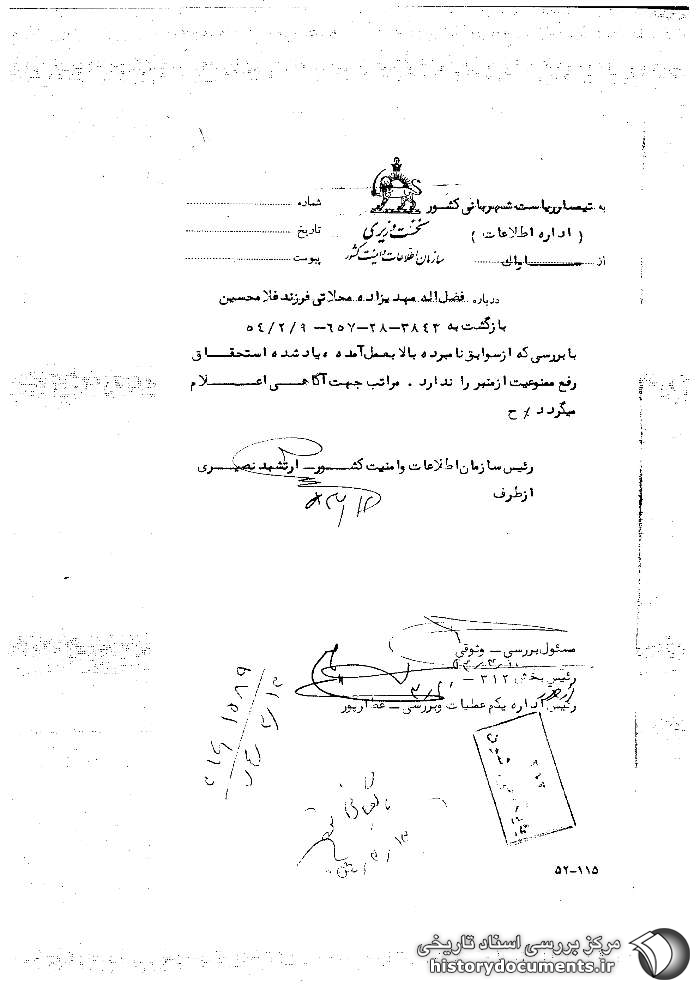 به تیمسار ریاست شهربانی کشور
( اداره اطلاعات )
از ساواك
نخست وزیری
سازمان اطلاعات و امنیت کشور
شماره
تاریخ
پیوست
درباره فضل اله مهدیزاده محلاتی فرزند غلامحسین
بازگشت به ۳۸۴۳-۲۸-۶۵۷-۵۴/۲/۹
با بررسی که از سوابق نامبرده بالا بعمل آمده و یاد شده استحقاق
رفع ممنوعیت از منبر را ندارد . مراتب جهت آگاهی اعلام
میگردد / ح
رئیس سازمان اطلاعات و امنیت کشور - ارتشبد نصیری
از طرف
مسئول بررسی - وثوقی
رئیس بخش ۳۱۲ -
رئیس اداره یکم عملیات و بررسی - عطارپور
بایگانی شود
۵۲-۱۱۵
مرکز بررسی اسناد تاریخی
historydocuments.ir